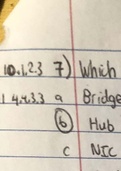 10.1.2.3 7) Which
1 4.4.3.3 a Bridge
b Hub
c NIC